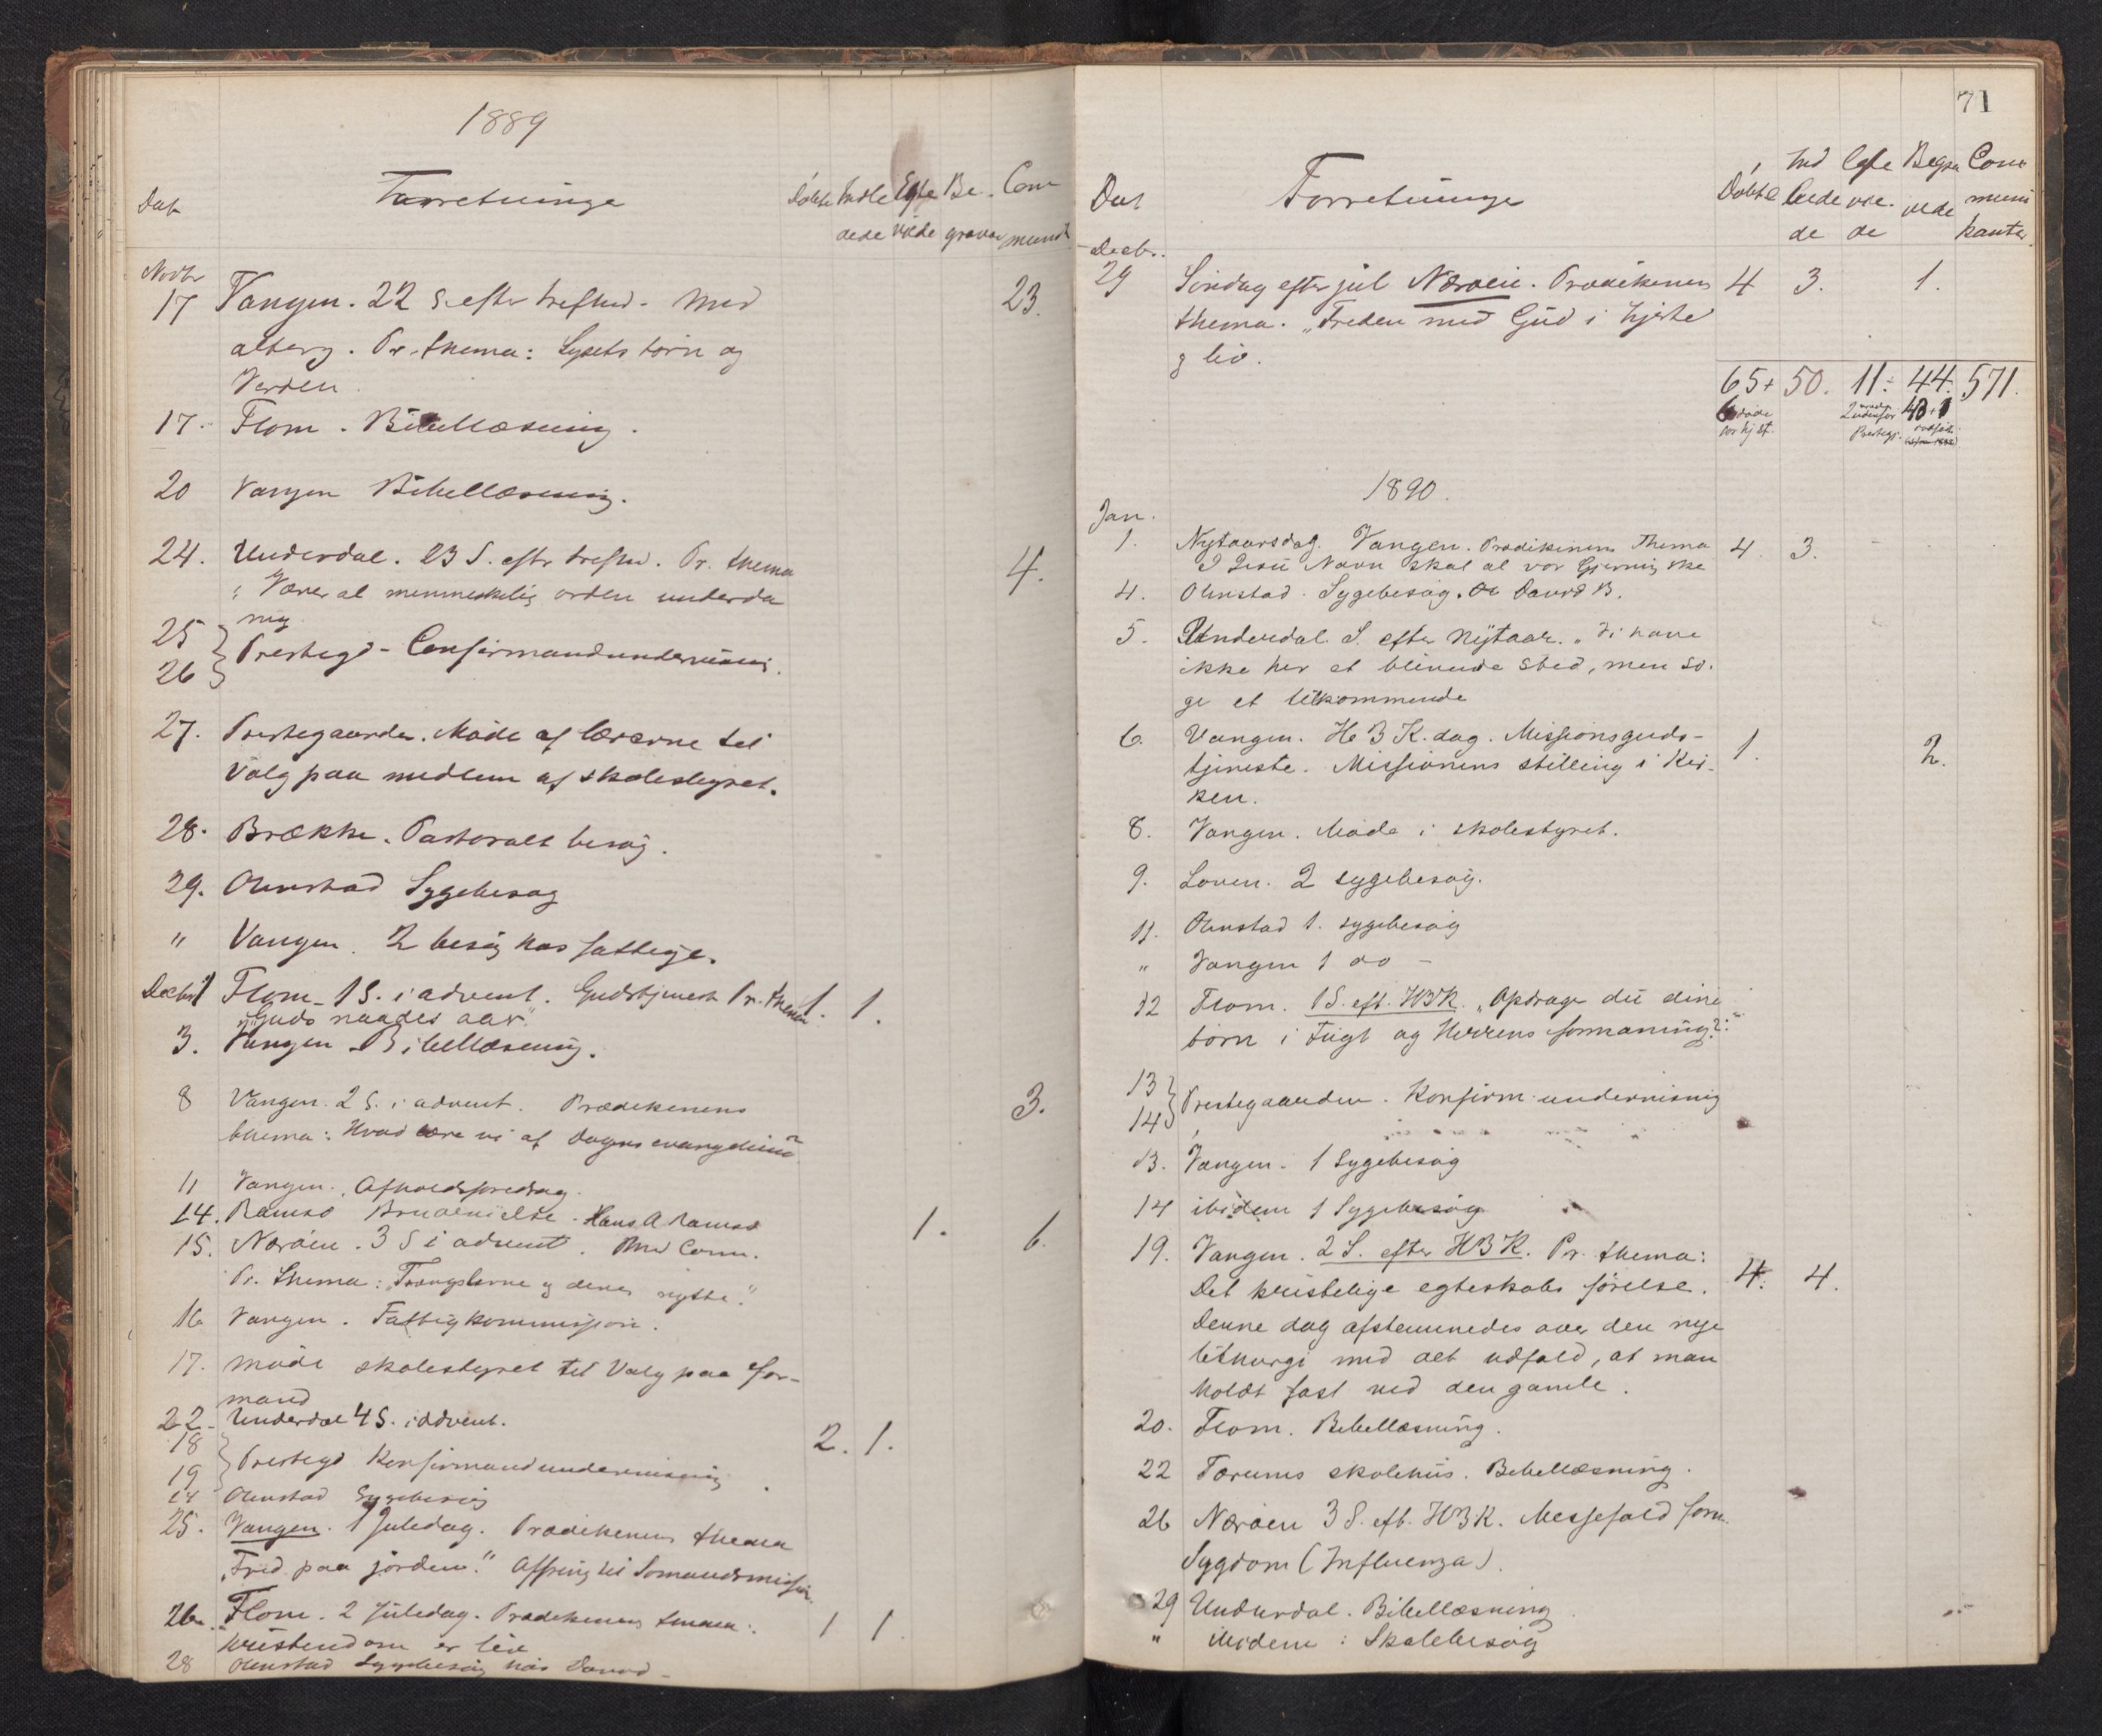 1889
Dat Forretninge Döbte Indle Egte Be- Com
dede viede grave muni
Novbr
17 Vangen. 22 S. efter trefhed. Med 23.
alterg. Pr. thema: Lysets börn og
Verden.
17. Flom. Bibellæsning.
20 Vangen Bibellæsning.
24. Underdal. 23 S. eftr trefhed. Pr. thema 4.
: Værer al menneskelig orden underda
nig
25
26 Prestegd - Confirmandundervisning.
27. Prestegaarden. Möde af lærerne til
Valg paa medlem af skolestyret.
28. Brække. Pastoralt besög.
29. Olmstad Sygebesög
" Vangen. 2 besög hos fattige.
Decbr 1 Flom. 1 S. i advent. Gudstjeneste Pr. thema 1. 1.
"Guds naades aar."
3. Vangen Bibellæsning.
8 Vangen. 2 S. i advent. Prædikenens 3.
thema: Hvad lære vi af Dagens evangelium?
11 Vangen. Afholdsforedrag.
14. Ramsö Brudevielse. Hans A Ramsö 1.
15. Næröen. 3 S i advent. Med Com. 6.
Pr. thema: Trængslerne og deres nytte."
16 Vangen. Fattigkommission.
17. Möde skolestyret til Valg paa for-
mand
22. Underdal 4 S. i advent. 2. 1.
18
19 Prestegd Konfirmandundervisning
24 Olmstad Sygebesög
25. Vangen. 1 Juledag. Prædikenens thema
"Fred paa jorden." Offring til Sömandsmission.
26. Flom. 2 Juledag. Prædikenens thema: 1 1
Kristendom er liv
28 Olmstad Sygebesög hos David
71
Dat Forretninge Döbte Ind Egte Begra Com
lede vie. vede muni
de de kanter.
Decbr.
29 Söndag efter jul Næröen. Prædikenens 4 3. 1.
thema. "Freden med Gud i hjerte
og liv.
65+ 50. 11: 44. 571.
1890.
Jan.
1. Nytaarsdag. Vangen. Prædikenens Thema 4. 3.
I Jesu Navn skal al vor Gjerning ske
4. Olmstad. Sygebesög. David B.
5. Underdal. S. efter Nytaar. "Vi have
ikke her et blivende sted, men sö-
ge et tilkommende
6. Vangen. H 3 K. dag. Missionsguds- 1. 2.
tjeneste. Missionens stilling i Kir-
ken.
8. Vangen. Möde i skolestyret.
9. Loven. 2 sygebesög.
11. Olmstad 1. sygebesög
" Vangen 1 do -
12 Flom. 1 S. eft. H3K. "Opdrager du dine
börn i Tugt og Herrens formaning?"
13
14 Prestegaarden. Konfirm. undervisning
13. Vangen. 1 Sygebesög
14 ibidem 1 Sygebesög
19. Vangen. 2 S. efter H3K. Pr. thema:
Det kristelige egteskabs förelse. 4. 4.
Denne dag afstemnedes over den nye
lithurgi med det udfald, at man
holdt fast ved den gamle.
20. Flom. Bibellæsning.
22 Tærums skolehus. Bibellæsning.
26 Næröen 3 S. eft. H3K. Messefald form.
Sygdom (Influenza).
29 Underdal. Bibellæsning
" ibidem: Skolebesög